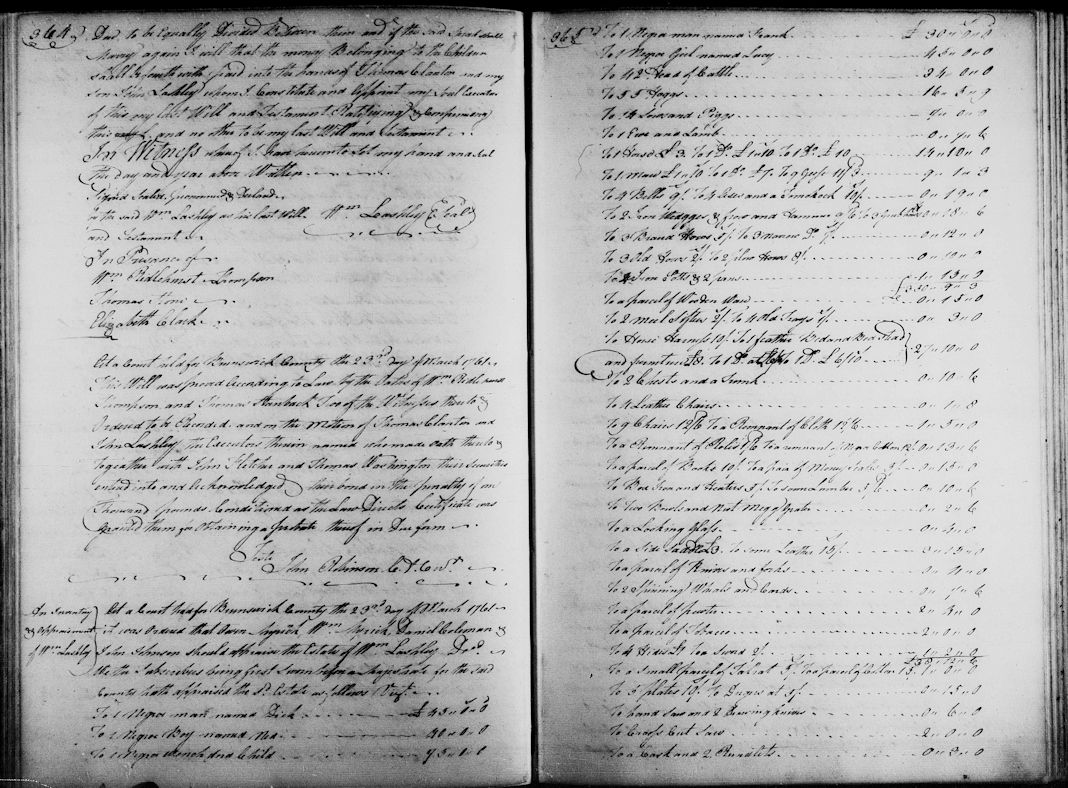 364
Dau. to be Equally Divided Between them and if the said Sarah shall
Marry again I will that the money Belonging to the Children
shall forthwith paid into the hands of Thomas Clanton and my
Son John Lashley whom I Constitute and Appoint my Executor
of this my last Will and Testament Ratifying & Confirming
this and no other to be my last Will and Testament
In Witness whereof I have hereunto Set my hand and Seal
the day and year above Written
Signed Sealed Pronounced & Declared
by the said Wm. Lashley as his last Will Wm. Lashley Seal
and Testament
In Presence of
Wm. Thompson
Thomas
Elizabeth Clack
At a Court held for Brunswick County the 23rd. day of March 1761
This Will was proved According to Law by the Oaths of Wm.
Thompson and Thomas Two of the Witnesses thereto &
Ordered to be Recorded and on the Motion of Thomas Clanton and
John Lashley the Executors therein named who made Oath thereto &
together with John Fletcher and Thomas Washington their Securities
entered into and Acknowledged their bond in the penalty of one
Thousand pounds Conditioned as the Law Directs Certificate was
granted them for Obtaining a Probate thereof in Due form
Teste John Robinson C. B. Curt.
An Inventory
& Appraisement
of Wm. Lashley
At a Court held for Brunswick County the 23rd. day of March 1761
it was Ordered that Owen Myrick Wm. Myrick Daniel Coleman &
John Johnson should appraise the Estate of Wm. Lashley Decd.
We the Subscribers being first Sworn before a Magistrate for the Said
County hath appraised the sd. Estate as follows Vizt.
To 1 Negro man named Dick £ 45 " 0 " 0
To 1 Negro Boy named Ned 40 " 0 " 0
To 1 Negro wench and Child 75 " 0 " 0
365
To 1 Negro man named Frank £ 30 " 0 " 0
To 1 Negro Girl named Lucy 45 " 0 " 0
To 42 Head of Cattle 34 " 0 " 0
To 55 Hoggs 16 " 5 " 9
To Sows and Piggs 4 " 0 " 0
To 1 Ewe and Lamb 0 " 7 " 6
To 1 Horse £ 3. To 1 Do. £ 1 " 10 To 1 Do. £ 10 14 " 10 " 0
To 1 mare £ 1 " 10 To 1 Do. £ 7 To 9 Geese 11/3 9 " 1 " 3
To 4 Bells 9/. To 4 axes and a 10/. 0 " 19 " 0
To 2 Iron Wedges & frow and Hammer 9/6 To 3 0 " 18 " 6
To 3 Broad Howes 5/. To 3 narrow Do. 7/. 0 " 12 " 0
To 3 Old Howes 2/. To 2 plow Howes 8/. 0 " 10 " 0
To Iron Potts & 2 pans 1 " 13 " 0
To a parcel of Wooden Ware 0 " 15 " 0
To 2 meal Sifters 2/. To 4 Old Trays 1/. 0 " 3 " 0
To Horse Harness 10/. To 1 feather Bed and Bed stead
and furniture To 1 Do. at To 1 Do. £ 6 " 10 27 " 10 " 0
To 2 Chests and a Trunk 0 " 10 " 6
To 4 Leather Chairs 0 " 1 " 8
To 9 Chairs 12/6 To a Remnant of Cloth 12/6 1 " 5 " 0
To a Remnant of To a remnant of Negro Cotton 0 " 13 " 6
To a parcel of Books 10/. To a pair of Money Scales 5/. 0 " 15 " 0
To Box Iron and Heaters 5/. To some Lumber 5/6 0 " 10 " 6
To Two Bowls and Nutmegg grate 0 " 2 " 6
To a Looking Glass 0 " 4 " 0
To a Side Saddle £ 3. To some Leather 15/. 3 " 15 " 0
To a parcel of Knives and forks 0 " 4 " 0
To 2 Spinning Wheels and Cards 0 " 7 " 6
To a parcel of Pewter 2 " 3 " 0
To a parcel of Tobacco 2 " 0 " 0
To 4 Hides To a Sword 2/. 1 " 2 " 0
To a Small parcel of Salt at To a parcel of Cotton 15/. 1 " 0 " 0
To 5 plates 10/. To Juggs at 5/. 0 " 15 " 0
To hand saw and 2 Drawing knives 0 " 6 " 0
To Cross Cut Saw 2 " 0 " 0
To a Cask and 2 Rundlets 0 " 3 " 0